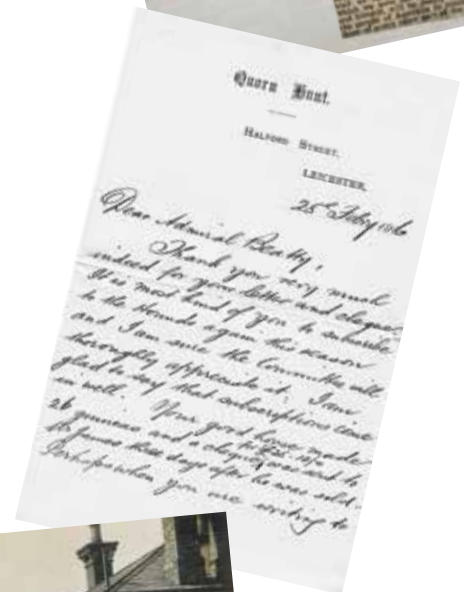 Quorn Hunt.
Halford Street,
Leicester,
25th Feby 1916
Dear Admiral Beatty,
Thank you very much
indeed for your letter and cheque
It is most kind of you to subscribe
to the Hounds again this season
and I am sure the Committee will
thoroughly appreciate it. I am
glad to say that subscriptions come
in well. Your good horse made
26 guineas and a cheque was sent to
these days after he was sold.
Perhaps when you are writing to